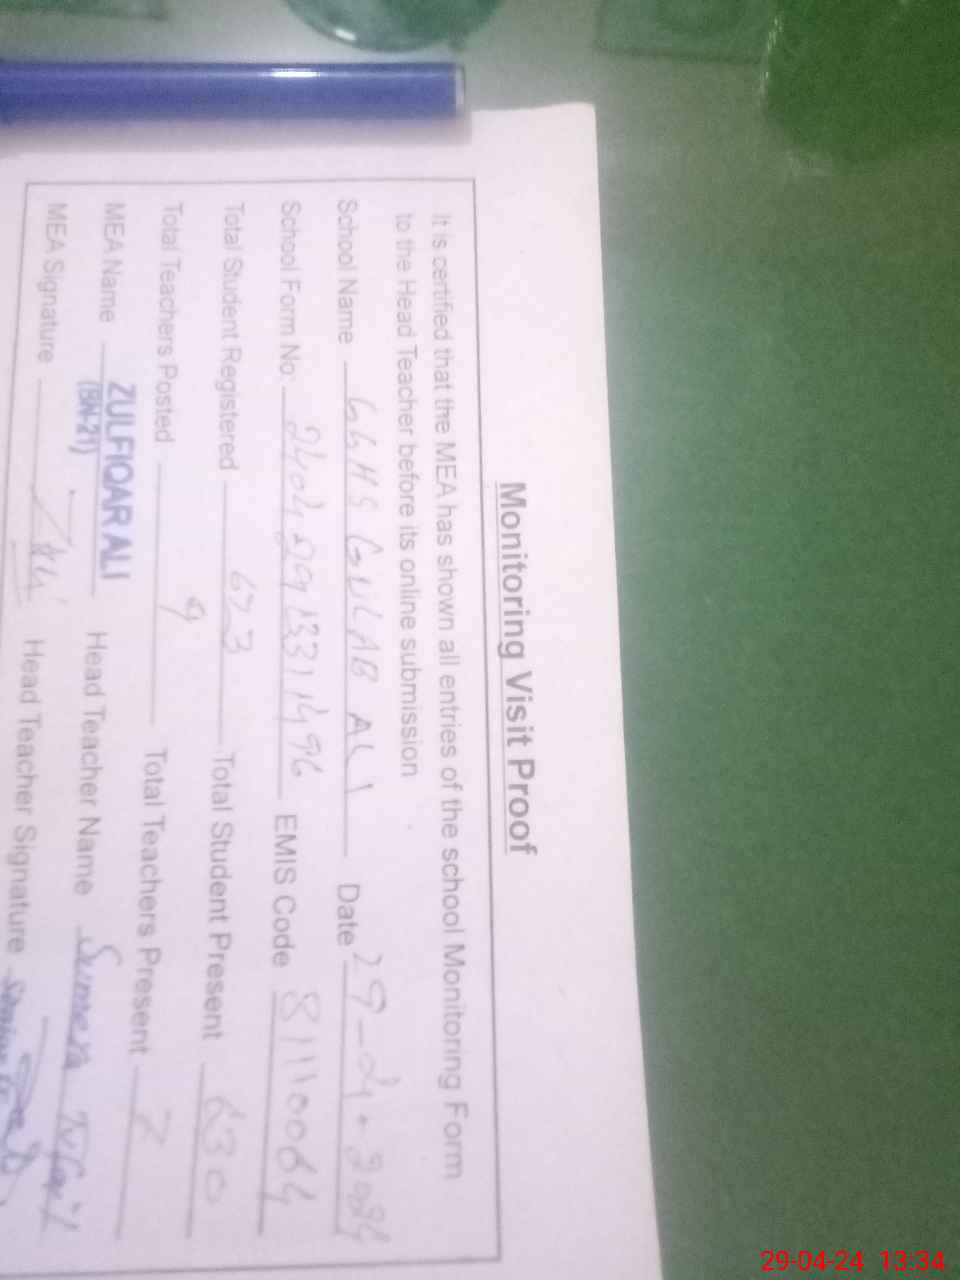 Monitoring Visit Proof
It is certified that the MEA has shown all entries of the school Monitoring Form
to the Head Teacher before its online submission
School Name GGHS GULAB ALI Date 29-04-2024
School Form No: EMIS Code 31110064
Total Student Registered Total Student Present 630
Total Teachers Posted 9 Total Teachers Present 7
MEA Name ZULFIQAR ALI Head Teacher Name Sumera
(BN-21)
MEA Signature Head Teacher Signature
29-04-24 13:34